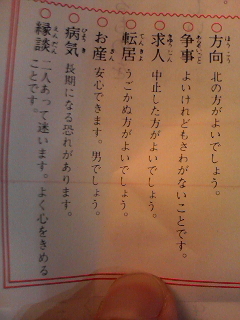 方向 北の方がよいでしょう。
争事 よいけれどもさわがないことです。
求人 中止した方がよいでしょう。
転居 うごかぬ方がよいでしょう。
お産 安心できます。男でしょう。
病気 長期になる恐れがあります。
縁談 二人あって迷います。よく心をきめる
ことです。